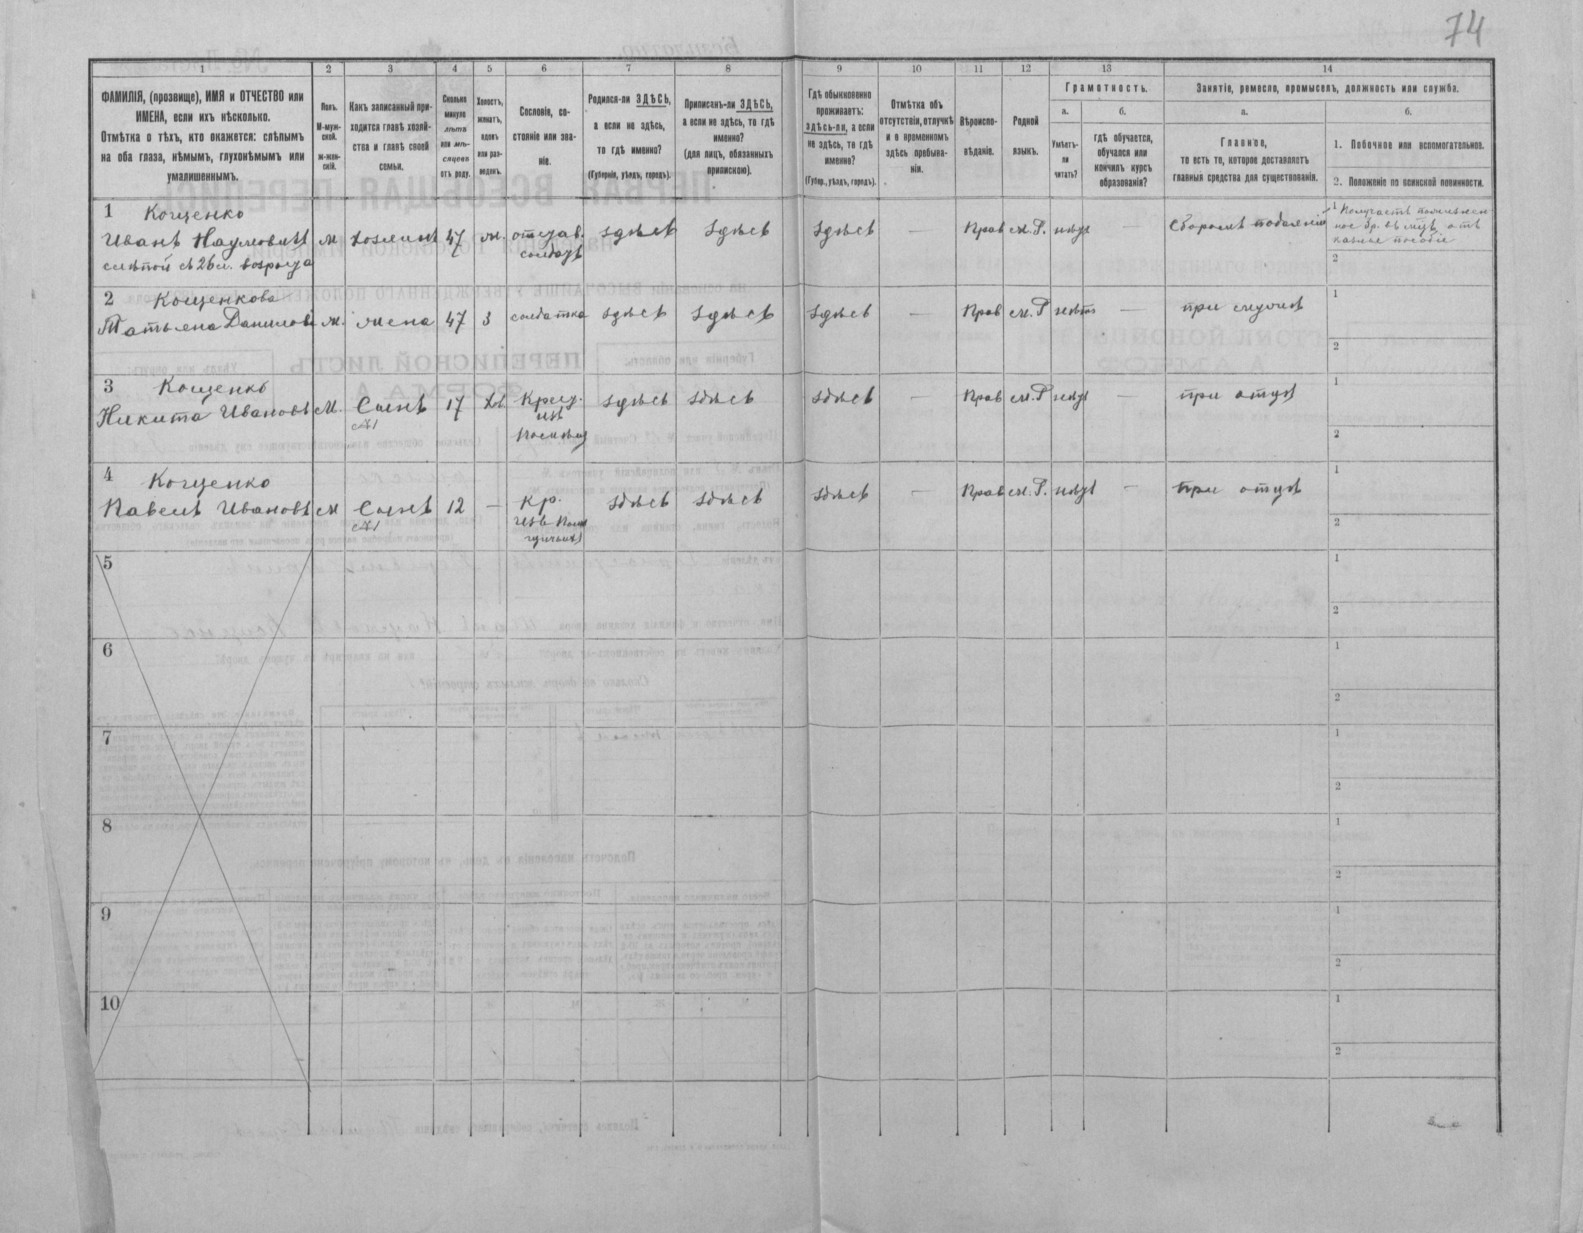 74
1 2 3 4 5 6 7 8 9 10 11 12 13 14
ФАМИЛІЯ, (прозвище), ИМЯ и ОТЧЕСТВО или
ИМЕНА, если ихъ нѣсколько.
Отмѣтка о тѣхъ, кто окажется: слѣпымъ
на оба глаза, нѣмымъ, глухонѣмымъ или
умалишеннымъ.
Полъ.
М-муж-
ской.
ж-жен-
скій.
Какъ записанный при-
ходится главѣ хозяй-
ства и главѣ своей
семьи.
Сколько
минуло
лѣтъ
или мѣ-
сяцевъ
отъ роду.
Холостъ,
женатъ,
вдовъ
или раз-
веденъ.
Сословіе, со-
стояніе или зва-
ніе.
Родился-ли ЗДѢСЬ,
а если не здѣсь,
то гдѣ именно?
(Губернія, уѣздъ, городъ).
Приписанъ-ли ЗДѢСЬ,
а если не здѣсь, то гдѣ
именно?
(для лицъ, обязанныхъ
припискою).
Гдѣ обыкновенно
проживаетъ:
здѣсь-ли, а если
не здѣсь, то гдѣ
именно?
(Губер., уѣздъ, городъ).
Отмѣтка объ
отсутствіи, отлучкѣ
и о временномъ
здѣсь пребыва-
ніи.
Вѣроиспо-
вѣданіе.
Родной
языкъ.
Грамотность.
а. б.
Умѣетъ-
ли
читать?
гдѣ обучается,
обучался или
кончилъ курсъ
образованія?
Занятіе, ремесло, промыселъ, должность или служба.
а. б.
Главное,
то есть то, которое доставляетъ
главныя средства для существованія.
1. Побочное или вспомогательное.
2. Положеніе по воинской повинности.
1 Кощенко
Иванъ Наумовичъ м хозяинъ 47 ж. отстав. здѣсь здѣсь здѣсь — Прав м. Р. нѣтъ —
солдатъ
слѣпой съ 26 л. возраста
1
казны пособіе
2
2 Кощенкова
Татьяна Данилов ж. жена 47 з солдатка здѣсь здѣсь здѣсь — Прав м. Р нѣтъ — при мужѣ
1
2
3 Кощенко
Никита Ивановъ М. Сынъ 17 Хол здѣсь здѣсь здѣсь — Прав м. Р нѣтъ — при отцѣ
1
2
4 Кощенко
Павелъ Ивановъ м Сынъ 12 — Кр. здѣсь здѣсь здѣсь — Прав м. Р. нѣтъ — при отцѣ
1
2
5
1
2
6
1
2
7
1
2
8
1
2
9
1
2
10
1
2